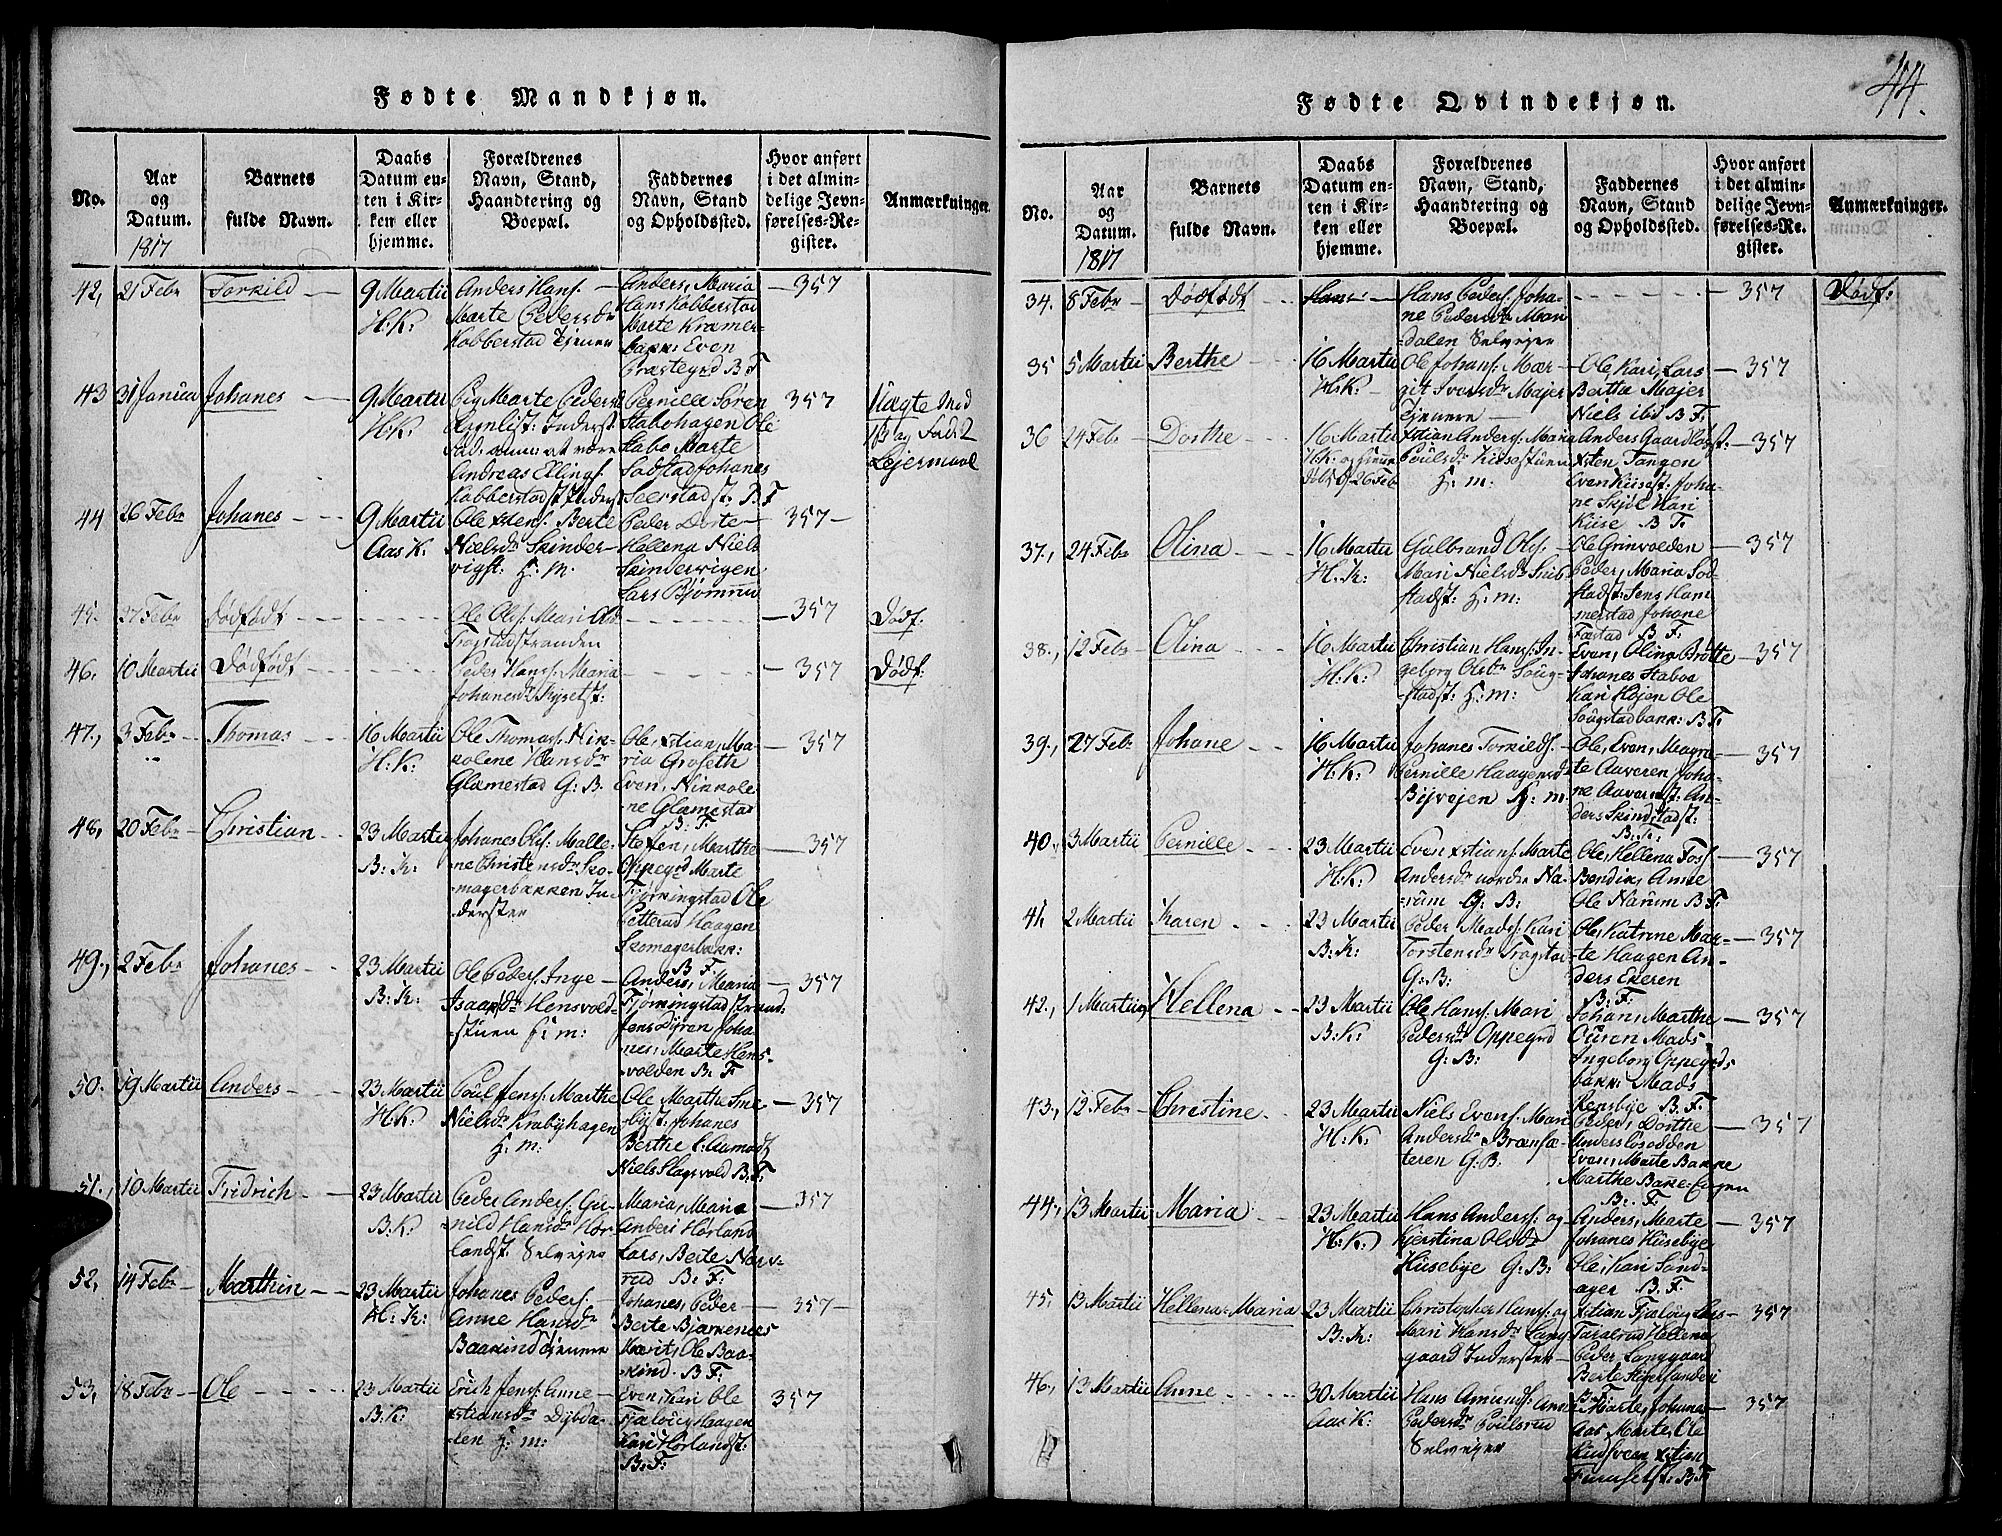 44.
Fødte Mandkjøn.
No.
Aar og Datum.
1817
Barnets fulde Navn.
Daabs Datum enten i Kirken eller hjemme.
Forældrenes Navn, Stand, Haandtering og Boepæl.
Faddernes Navn, Stand og Opholdssted.
Hvor anført i det almindelige Jevnførelses-Register.
Anmærkninger.
42, 21 Febr Torkild 9 Martii H.K: Anders Hans: Marte Pedersdr Kobberstad Tjener
Anders, Maria
Hans Kobberstad
Marte Kræmer-
bakk: Even
Præstegrd B F
357
43 31 Janua Johanes 9 Martii H.K. Pig Marte Peders
Andreas Elling:
Pernille Søren
Stabohagen Ole
Stabo Marte
Sodstad Johanes
Seerstad st: B F
357
Lejermaal
44 26 Febr Johanes 9 Martii Aas K. Ole Xtens: Berte
Nielsdr Skinder-
vigst: H. M.
Peder Dorte
Hellena Niels
Skinderwigen
Lars Bjørnru
357
45. 27 Febr Dødfødt
Ole Ols: Mari
Frogstadstranden
357
Dødf:
46. 10 Martii Dødfødt
Peder Hans: Maria
Johanesdr Ryset st:
357
Dødf:
47., 3 Febr Thomas 16 Martii H.K:
Ole Thomas: Nik-
kolene Hansdr
Glæmestad G: B.
Ole, Xtian, Ma-
ria Groseth
Even, Nikkole-
ne Glæmestad
B. F.
357
48, 20 Febr Christian 23 Martii B. K:
Johanes Ols: Malle-
ne Christensdr Sko-
magerbakken In-
derster
Steffen, Marthe
Oppegrd Marte
Fjørkingstad Ole
Petterud Haagen
Skomagerbakk:
B F
357
49., 2 Febr Johanes 23 Martii B: K:
Ole Peders: Inge
Isaaksdr Hensvold-
stuen H: m:
Anders, Maria
Johanes, Marte Hens-
volden B: F
357
50. 19 Martii Anders 23 Martii H.K:
Poul Jens: Marthe
Nielsdr Krabyhagen
H: m:
Ole Marthe Sme-
byst: Johanes
Berthe
Niels Slagsvold B F:
357
51., 10 Martii Fridrich 23 Martii B.K:
Peder Anders: Gu-
nild Hansdr Hør-
landst: Selveier
Maria, Maria
Anders Hørland
Lars, Berte Narv-
rud B: F:
357
52, 14 Febr Marthin 23 Martii H: K:
Johanes Peders:
Anne Hansdr
Baakind Tjenere
Johanes, Peder
Berte Bjørkenees
Marit, Ole Baa-
kind. B: F:
357
53, 18 Febr Ole 23 Martii B.K:
Erich Jens: Anne
Xtiansdr Dybda-
len H: m:
Even, Kari Ole
Fjæløug Haagen
Kari Hørlandst:
B: F:
357
Fødte Qvindekjøn.
No.
Aar og Datum.
1817
Barnets fulde Navn.
Daabs Datum enten i Kirken eller hjemme.
Forældrenes Navn, Stand, Haandtering og Boepæl.
Faddernes Navn, Stand og Opholdssted.
Hvor anført i det almindelige Jevnførelses-Register.
Anmærkninger.
34. 8 Febr Dødfødt
Hans Peders: Joha-
ne Pedersdr Mari-
dalen Selveier
357
Dødf:
35 5 Martii Berthe 16 Martii H:K:
Ole Johans: Mar-
git Iversdr Majer
Tjenere
Ole Kari, Lars
Berthe Majer
Niels ibid B F:
357
36 24 Febr Dorthe 16 Martii
Xtian Anders: Maria
Poulsdr Kisestuen
H: m:
Anders Gaardløsst:
Xsten Tangen
Even Kisest: Joha-
ne Skjøl Kari
Kiise B F:
357
37., 24 Febr Olina 16 Martii H: K:
Gulbrand Ols:
Mari Nielsdr
H: m:
Ole Grinvolden
Peder, Maria Sod-
stadst: Jens Ham-
merstad Johane
Færstad B F:
357
38., 12 Febr Olina 16 Martii H: K:
Christian Hans: In-
geborg Olsdr Soug-
stadst: H: m:
Even, Olina Brøtte
Johanes Staboe
Kari Højen Ole
Sougstadbakk: B F:
357
39., 27 Febr Johane 16 Martii H: K:
Johanes Torkilds:
Pernille Haagensdr
Bijvejen H: m:
Ole, Even, Magre-
te Aaveren, Joha-
ne Aaverenst: An-
ders Skindstadst:
B: F:
357
40., 3 Martii Pernille 23 Martii H:K:
Even Xtians: Marte
Andersdr nordre Na-
rum G: B:
Ole, Hellena Foss
Bendik, Anne
Ole Narum B F:
357
41. 2 Martii Karen 23 Martii B: K:
Peder Mads: Kari
Torstensdr Frogstad
G: B:
Ole, Katrine Mar-
te Haagen An-
ders Ekeren
B: F:
357
42., 1 Martii Hellena 23 Martii B:K:
Ole Hans: Mari
Pedersdr Oppegrd
G: B:
Johan, Marthe
Øüren Mads
Ingeborg Oppegrds
bakk: Mads
Rensbye B. F:
357
43., 12 Febr Christine 23 Martii H: K:
Niels Evens: Mari
Andersdr Brænsæ-
teren G. B.
Peder, Dorthe
Anders Løsodden
Even, Marte Bakke
Marthe Bakke-Engen
B. F:
357
44., 13 Martii Maria 23 Martii H: K:
Hans Anders: og
Kjerstina Olsdr
Husebye G: B:
Anders, Marte
Johanes Husebye
Ole, Kari Sand-
ager B: F:
357
45. 13 Martii Hellena Maria 23 Martii B: K:
Christopher Hans: og
Mari Hansdr Lang-
gaard Inderster
Xtian Fjæløug Lars-
Taralrud Hellena
Peder Langgaard
Berte
B: F:
357
46, 13 Martii Anne 30 Martii Aas K:
Hans Amund: Anne
Pedersdr Poulsrud
Selveier
Marte, Johane
Aas Marte, Ole
Rudsveen Xtian
Finnset st: B F
357